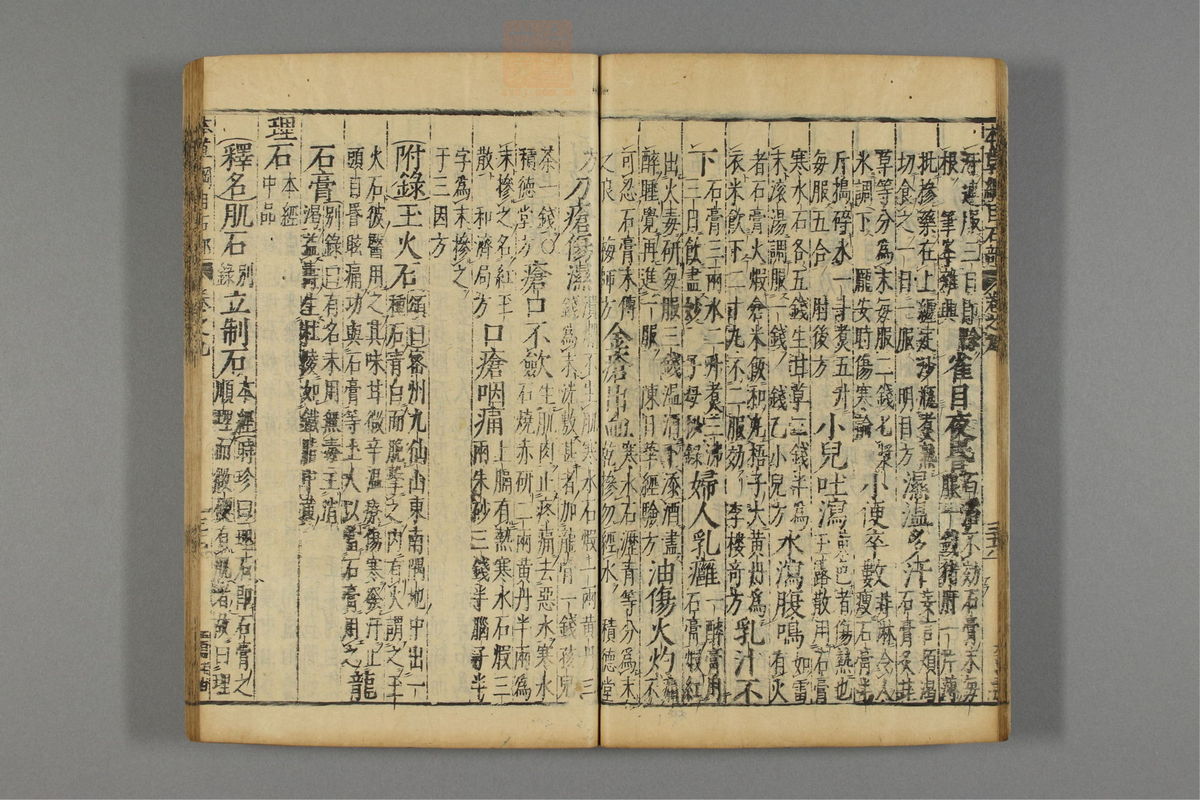 本草綱目石部 卷之九
牙。連服三日即除根。筆峯雜興 雀目夜昏百治不効石膏末每
服一錢豬肝一片薄
批摻藥在上纏定沙瓶煮熟
切食之一日一服 明目方 濕溫多汗妄言煩渴石膏炙甘
草等分為末每服二錢匕漿
水調下 龐安時傷寒論 小便卒數非淋令人瘦石膏半
斤搗碎水一斗煮五升
每服五合 肘後方 小兒吐瀉黃色者傷熱也玉露散用石膏
寒水石各五錢生甘草二錢半為
末滾湯調服一錢 乙小兒方 水瀉腹鳴如雷有火
者石膏火煅倉米飲和丸梧子大黃丹為
衣米飲下二十丸不二服効 李樓奇方 乳汁不
下石膏三兩水二升煮三沸
三日飲盡妙 子母秘錄 婦人乳癰一醉膏用石膏煅紅
出火毒研每服三錢溫酒下添酒盡
醉睡覺再進一服 陳日華經驗方 油傷火灼痛不
可忍石膏末傅
之良 梅師方 金瘡出血寒水石瀝青等分為末
乾摻勿經水 積德堂
方 刀瘡傷濕潰爛不生肌寒水石煅一兩黃丹二
錢為末洗敷甚者加龍骨一錢孩兒
茶一錢 積德堂方 瘡口不斂生肌肉止疼痛去惡水寒水
石燒赤研二兩黃丹半兩為
末摻之名紅玉
散 和濟局方 口瘡咽痛上膈有熱寒水石煅三
兩朱砂三錢半腦子半
字為末摻之
三因方
附錄玉火石頌曰密州九仙山東南隅地中出一
種石青白而脆擊之內有火謂之玉
火石彼醫用之其味甘微辛溫療傷寒發汗止
頭目昏眩痛功與石膏等土人以當石膏用之 龍
石膏別錄曰有名未用無毒主消
渴益壽生杜陵如鐵脂中黃
理石本經
中品
釋名肌石別
錄立制石本經時珍曰理石即石膏之
順理而微硬有肌者故曰理
本草綱目石部 卷之九